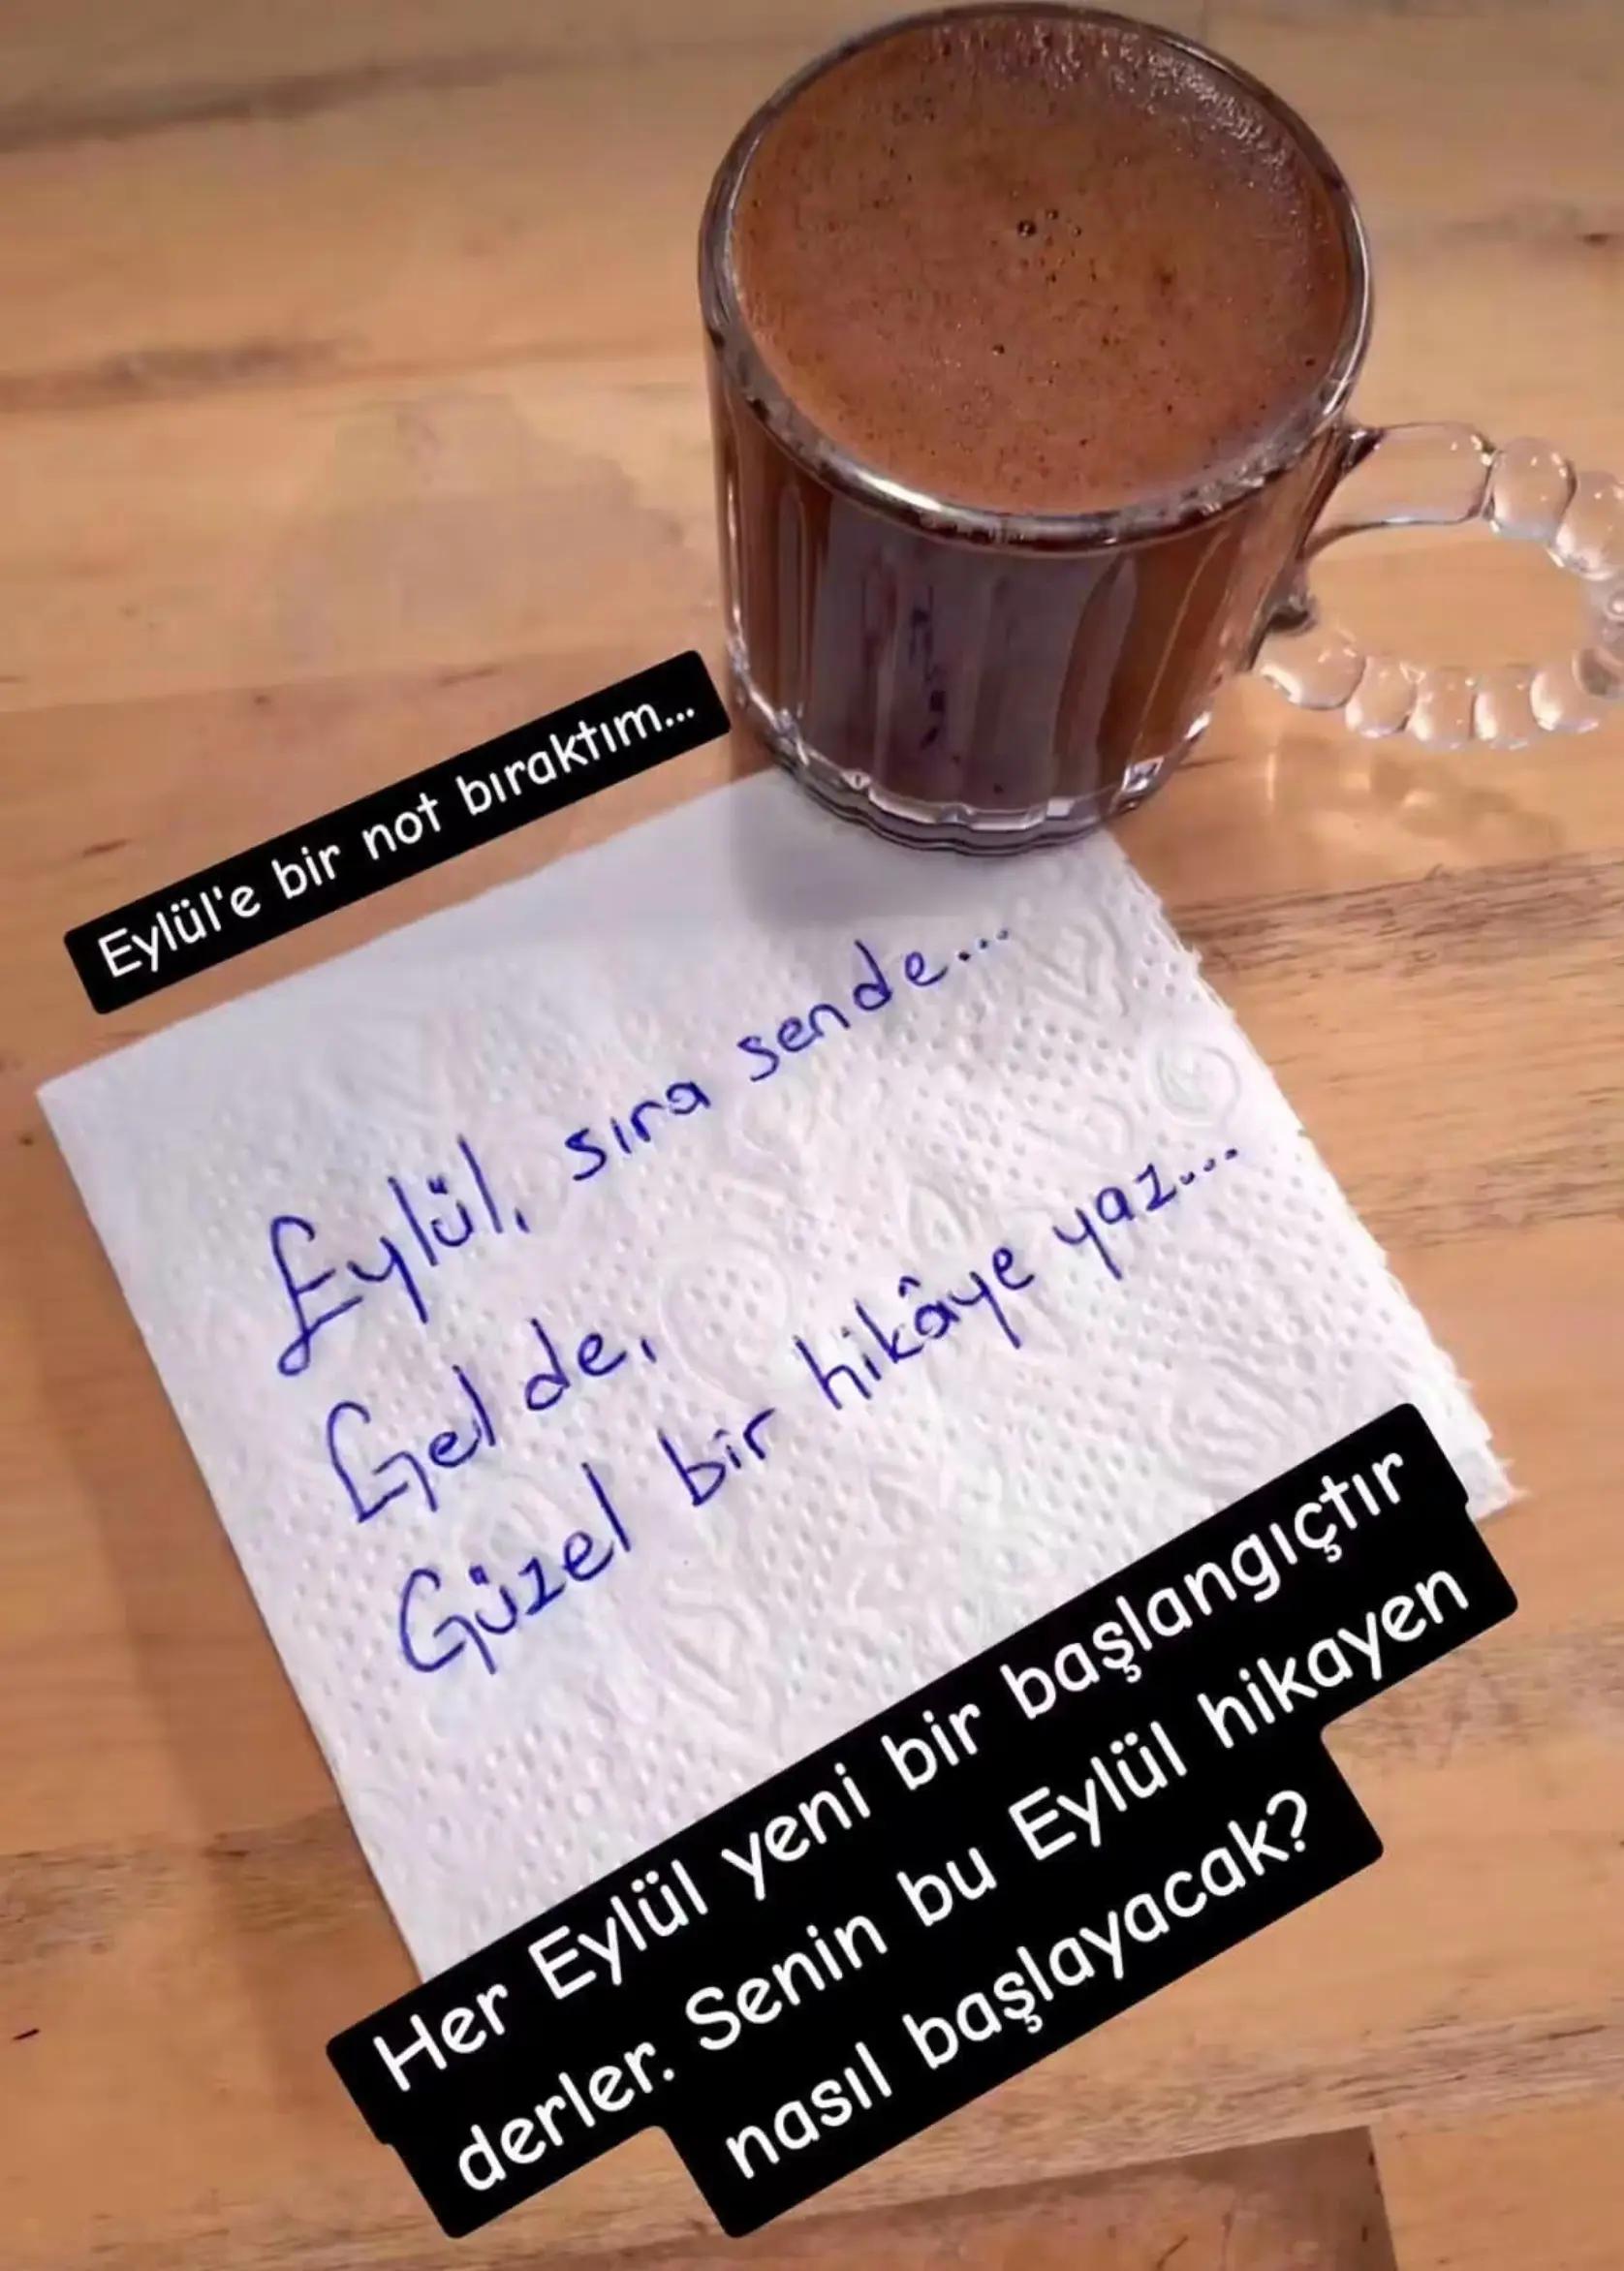 Eylül'e bir not bıraktım...
Eylül, sıra sende...
Gel de,
Güzel bir hikâye yaz...
Her Eylül yeni bir başlangıçtır
derler. Senin bu Eylül hikayen
nasıl başlayacak?